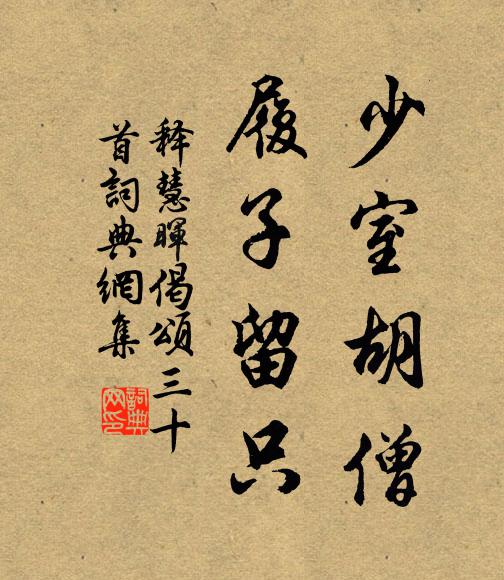 少室胡僧
履子留只
释慧暉偈頌三十
首詞典網集
詞典
网印